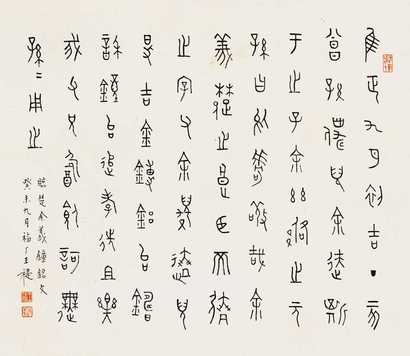 隹正九月初吉丁亥
曾孫僕兒余迭斯
于之子余茲佫之元
孫曰於嘑敬哉余
義楚之良臣而逨
之字父余贎逨兒
得吉金鎛鋁台鑄
訸鐘台追孝先且樂
我父兄飲飤訶舞
孫=用之
臨楚余義鐘銘文
癸未九月福厂王禔